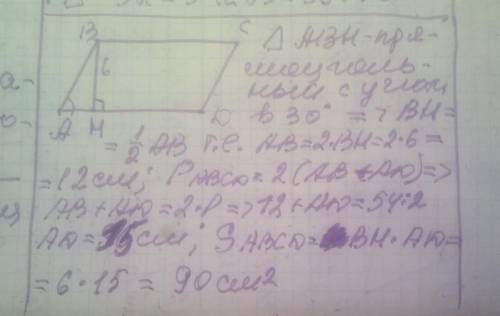 B C
6
A H D
△ ABH - пря-
моуголь-
ный с углом
в 30° => BH =
= 1/2 AB т.е. AB = 2·BH = 2·6 =
= 12 см; PABCD = 2(AB + AD) =>
AB + AD = 2·P => 12 + AD = 54:2
AD = 15 см; SABCD = BH · AD =
= 6·15 = 90 см2